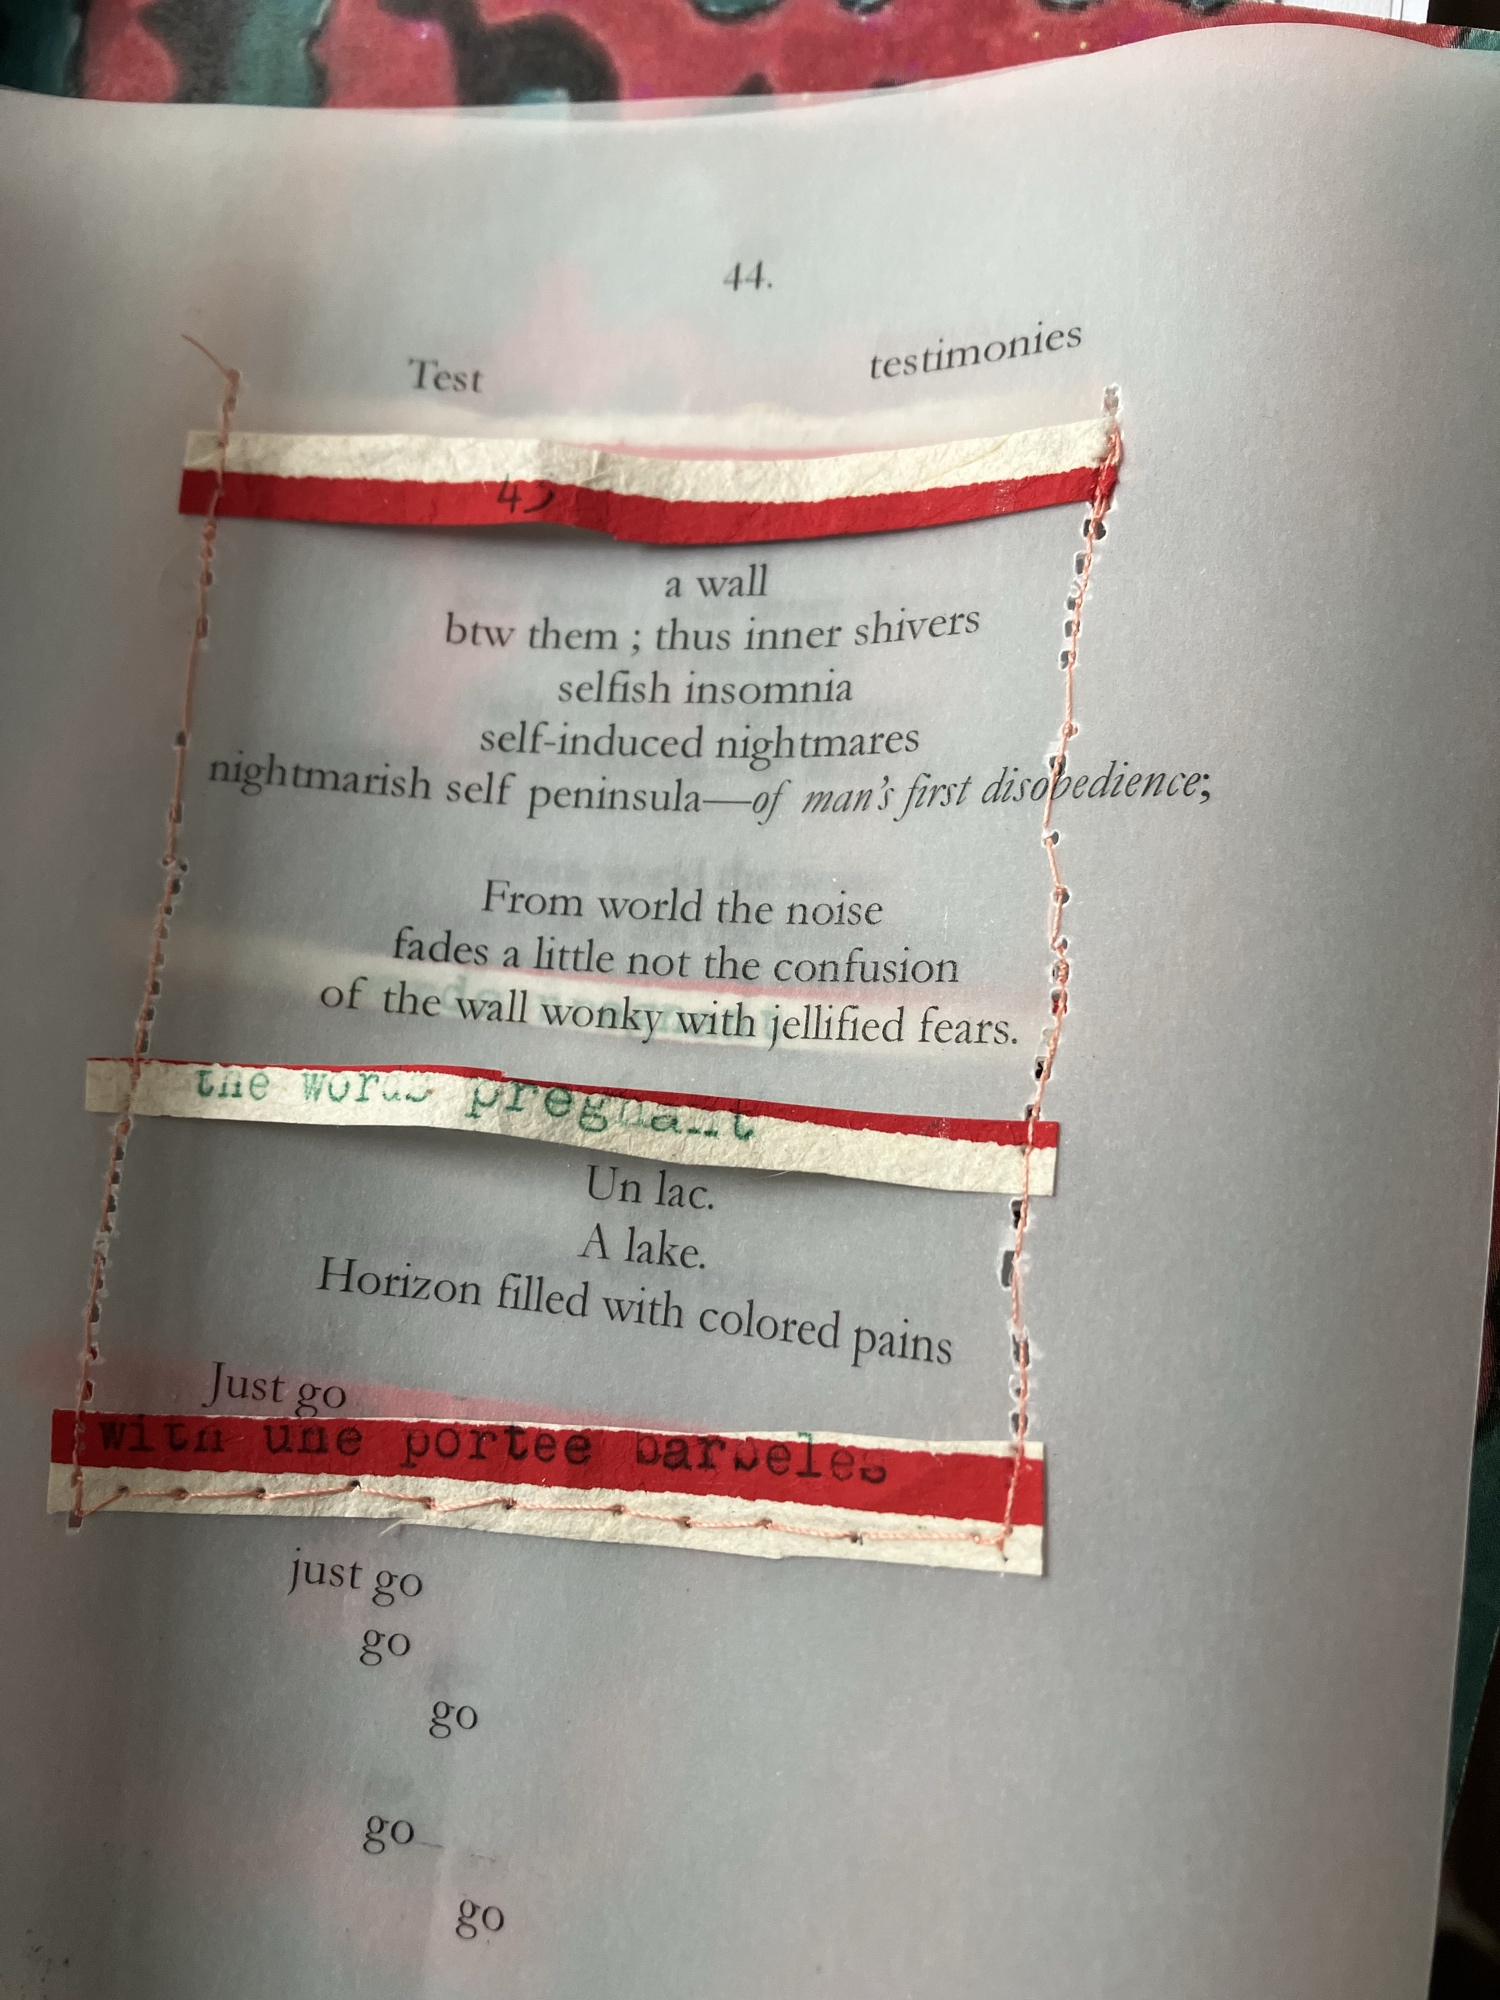 44.
Test testimonies
a wall
btw them ; thus inner shivers
selfish insomnia
self-induced nightmares
nightmarish self peninsula—of man's first disobedience;
From world the noise
fades a little not the confusion
of the wall wonky with jellified fears.
the words pregnant
Un lac.
A lake.
Horizon filled with colored pains
Just go
with une portee barbeles
just go
go
go
go
go